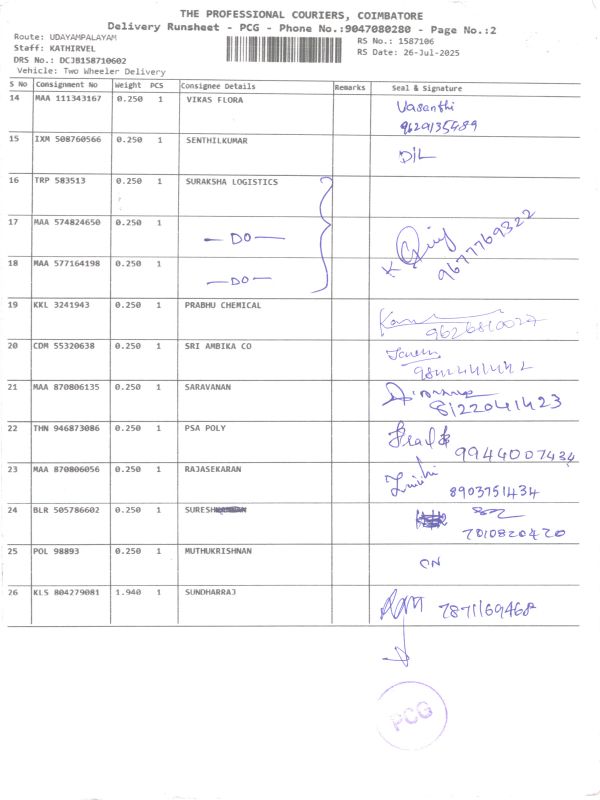 THE PROFESSIONAL COURIERS, COIMBATORE
Delivery Runsheet - PCG - Phone No.:9047080280 - Page No.:2
Route: UDAYAMPALAYAM
RS No.: 1587106
Staff: KATHIRVEL
RS Date: 26-Jul-2025
DRS No.: DCJB158710602
Vehicle: Two Wheeler Delivery
S No Consignment No Weight PCS Consignee Details Remarks Seal & Signature
14 MAA 111343167 0.250 1 VIKAS FLORA Vasanthi
9629135489
15 IXM 508760566 0.250 1 SENTHILKUMAR D/L
16 TRP 583513 0.250 1 SURAKSHA LOGISTICS
17 MAA 574824650 0.250 1 — DO — 9677769322
18 MAA 577164198 0.250 1 — DO —
19 KKL 3241943 0.250 1 PRABHU CHEMICAL
20 CDM 55320638 0.250 1 SRI AMBIKA CO
21 MAA 870806135 0.250 1 SARAVANAN
8122041423
22 THN 946873086 0.250 1 PSA POLY
9944007434
23 MAA 870806056 0.250 1 RAJASEKARAN
8903751434
24 BLR 505786602 0.250 1 SURESH
7010820420
25 POL 98893 0.250 1 MUTHUKRISHNAN CN
26 KLS 804279081 1.940 1 SUNDHARRAJ 7871169468
PCG